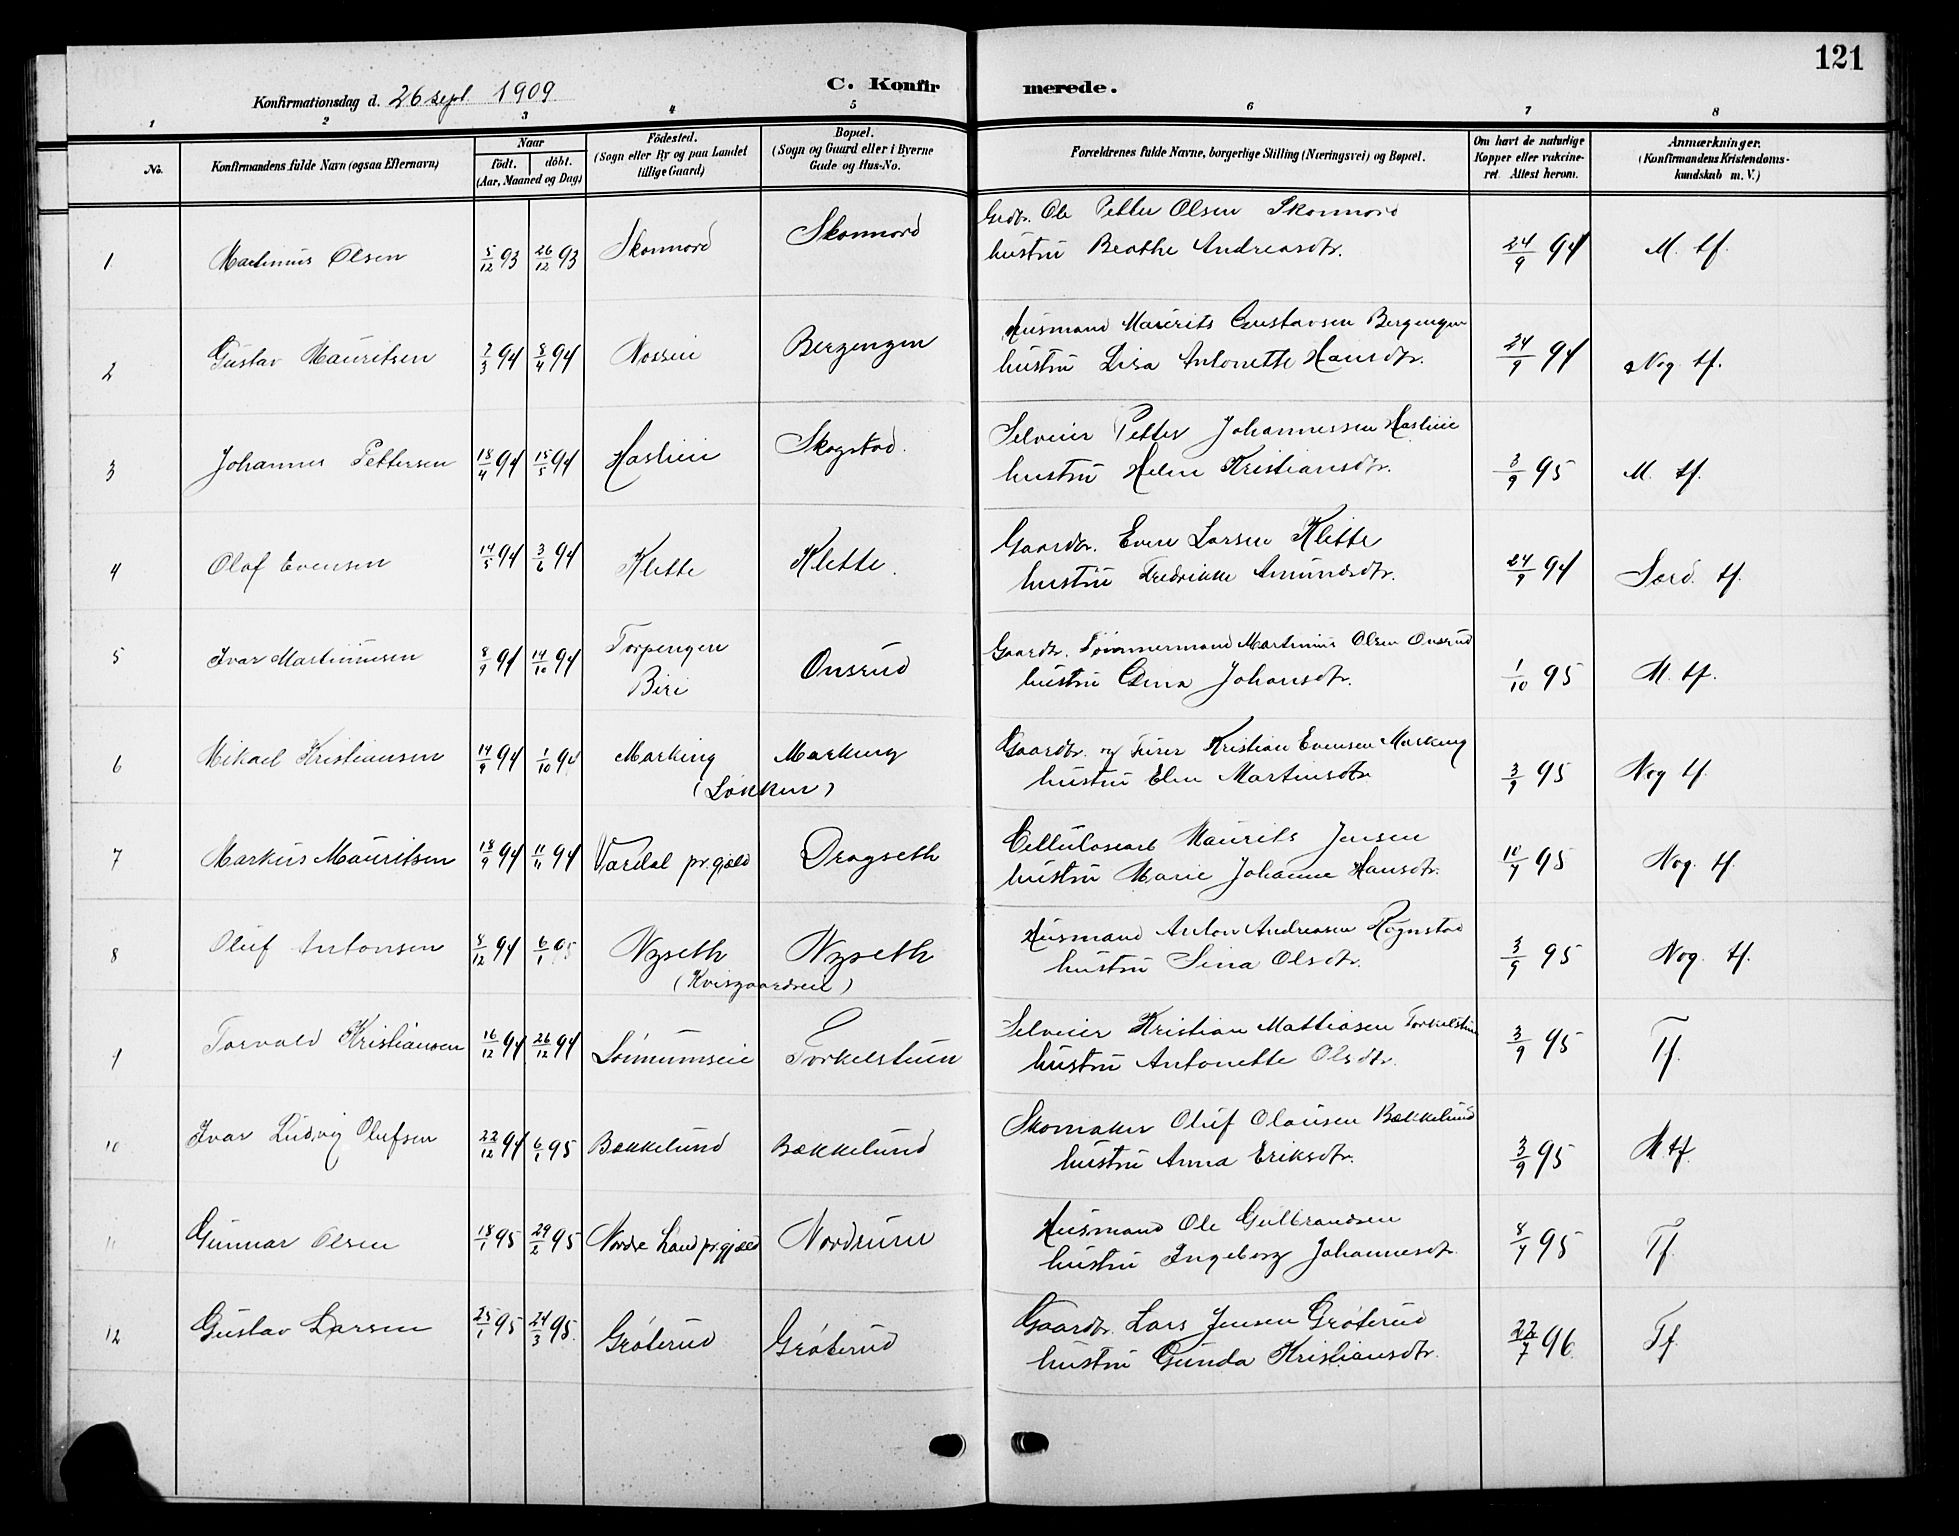 121
Konfirmationsdag d. 26 sept 1909
C. Konfirmerede.
1 2 3 4 5 6 7 8
No.
Konfirmandens fulde Navn (ogsaa Efternavn)
Naar
født. døbt.
(Aar, Maaned og Dag)
Fødested.
(Sogn eller By og paa Landet
tillige Gaard)
Bopæl.
(Sogn og Gaard eller i Byerne
Gade og Hus-No.
Forældrenes fulde Navne, borgerlige Stilling (Næringsvei) og Bopæl.
Om havt de naturlige
Kopper eller vakcine-
ret. Attest herom.
Anmærkninger.
(Konfirmandens Kristendoms-
kundskab m. V.)
1 Martinius Olsen 5/12 93 26/12 93 Skonnord Skonnord Grdbr. Ole Petter Olsen Skonnord 24/9 94 M. tf.
hustru Beathe Andreasdtr.
2 Gustav Mauritsen 7/3 94 8/4 94 Bergengen Husmand Maurits Gustavsen Bergengen 24/9 94 Nog. tf.
hustru Lisa Antonette Hansdtr.
3 Johannes Pettersen 18/4 94 15/5 94 Haslieie Skogstad. Selveier Petter Johannessen Haslieie 3/9 95 M. tf.
hustru Helene Kristiansdtr.
4 Olaf Evensen 14/5 94 3/6 94 Klette Klette. Gaardbr. Even Larsen Klette 24/9 94 Særd. tf.
hustru Fredrikke Amundsdtr.
5 Ivar Martiniusen 8/9 94 14/10 94 Torpengen Onsrud Gaardbr. Tømmermand Martinius Olsen Onsrud 1/10 95 M. tf.
Biri hustru Johansdtr.
6 Mikael Kristiansen 14/9 94 1/10 94 Marking Marking Gaardbr. og Kristian Evensen Marking 3/9 95 Nog tf.
(Løkken) hustru Elen Martinsdtr
7 Markus Mauritsen 18/9 94 11/11 94 Vardal pr.gjæld Dragseth Cellulosearb Maurits Jensen 10/7 95 Nog. tf.
hustru Marie Johanne Hansdtr.
8 Oluf Antonsen 8/12 94 6/1 95 Nyseth Nyseth Husmand Anton Andreasen Rognstad 3/9 95 Nog. tf.
(Kvisgaardseie) hustru Sina Olsdtr.
9 Torvald Kristiansen 16/12 94 26/12 94 Lønnumseie Torkelstuen Selveier Kristian Mathiasen Torkelstuen 3/9 95 Tf.
hustru Antonette Olsdtr.
10 Ivar Ludvig Olufsen 22/12 94 6/1 95 Bækkelund Bækkelund Skomaker Oluf Olausen Bækkelund 3/9 95 M tf.
hustru Anna Eriksdtr.
11 Gunnar Olsen 18/1 95 29/2 95 Nordre Land pr.gjæld Nordrum Husmand Ole Gulbrandsen 8/7 95 Tf.
hustru Ingeborg Johannesdtr.
12 Gustav Larsen 25/1 95 24/3 95. Grøterud Grøterud Gaardbr. Lars Jensen Grøterud 22/7 96. Tf.
hustru Gunda Kristiansdtr.